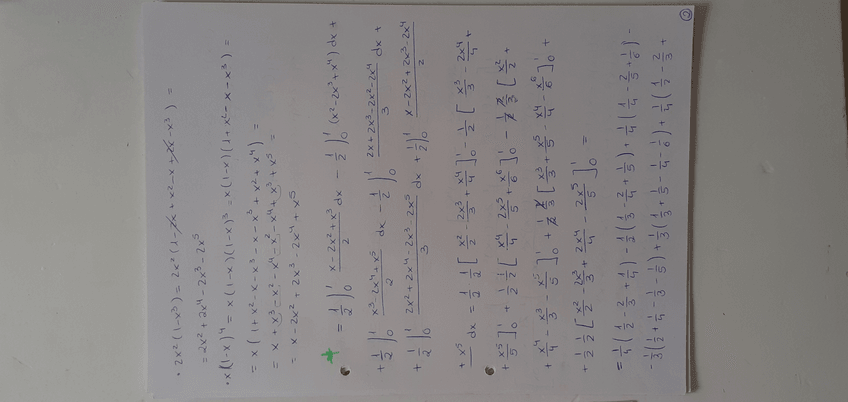 • 2x²(1-x³) = 2x²(1-2x+x²-x+2x-x³) =
= 2x²+2x⁴-2x³-2x⁵
• x(1-x)⁴ = x(1-x)(1-x)³ = x(1-x)(1+x²-x-x³) =
= x(1+x²-x-x³-x-x³+x²+x⁴) =
= x+x³-x²-x⁴-x²-x⁴+x³+x⁵ =
= x-2x²+2x³-2x⁴+x⁵
* = 1/2 ∫₀¹ (x-2x²+x³)/2 dx - 1/2 ∫₀¹ (x²-2x³+x⁴) dx +
+ 1/2 ∫₀¹ (x³-2x⁴+x⁵)/2 dx - 1/2 ∫₀¹ (2x+2x³-2x²-2x⁴)/3 dx +
+ 1/2 ∫₀¹ (2x²+2x⁴-2x³-2x⁵)/3 dx + 1/2 ∫₀¹ (x-2x²+2x³-2x⁴
+x⁵)/2 dx = 1/2 1/2 [x²/2 - 2x³/3 + x⁴/4]₀¹ - 1/2 [x³/3 - 2x⁴/4 +
+ x⁵/5]₀¹ + 1/2 1/2 [x⁴/4 - 2x⁵/5 + x⁶/6]₀¹ - 1/2 2/3 [x²/2 +
+ x⁴/4 - x³/3 - x⁵/5]₀¹ + 1/2 2/3 [x³/3 + x⁵/5 - x⁴/4 - x⁶/6]₀¹ +
+ 1/2 1/2 [x²/2 - 2x³/3 + 2x⁴/4 - 2x⁵/5]₀¹ =
= 1/4 (1/2 - 2/3 + 1/4) - 1/2 (1/3 - 2/4 + 1/5) + 1/4 (1/4 - 2/5 + 1/6) -
- 1/3 (1/2 + 1/4 - 1/3 - 1/5) + 1/3 (1/3 + 1/5 - 1/4 - 1/6) + 1/4 (1/2 - 2/3 +
2